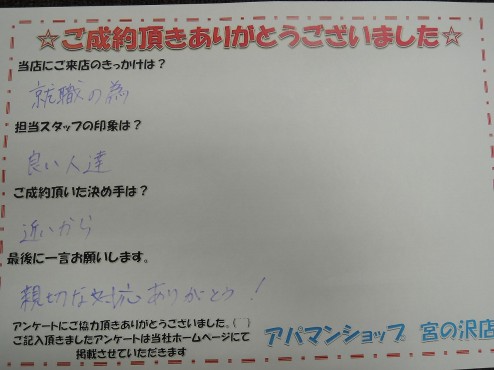 ☆ご成約頂きありがとうございました☆
当店にご来店のきっかけは？
就職の為
担当スタッフの印象は？
良い人達
ご成約頂いた決め手は？
近いから
最後に一言お願いします。
親切な対応ありがとう！
アンケートにご協力頂きありがとうございました。
ご記入頂きましたアンケートは当社ホームページにて
掲載させていただきます
アパマンショップ 宮の沢店